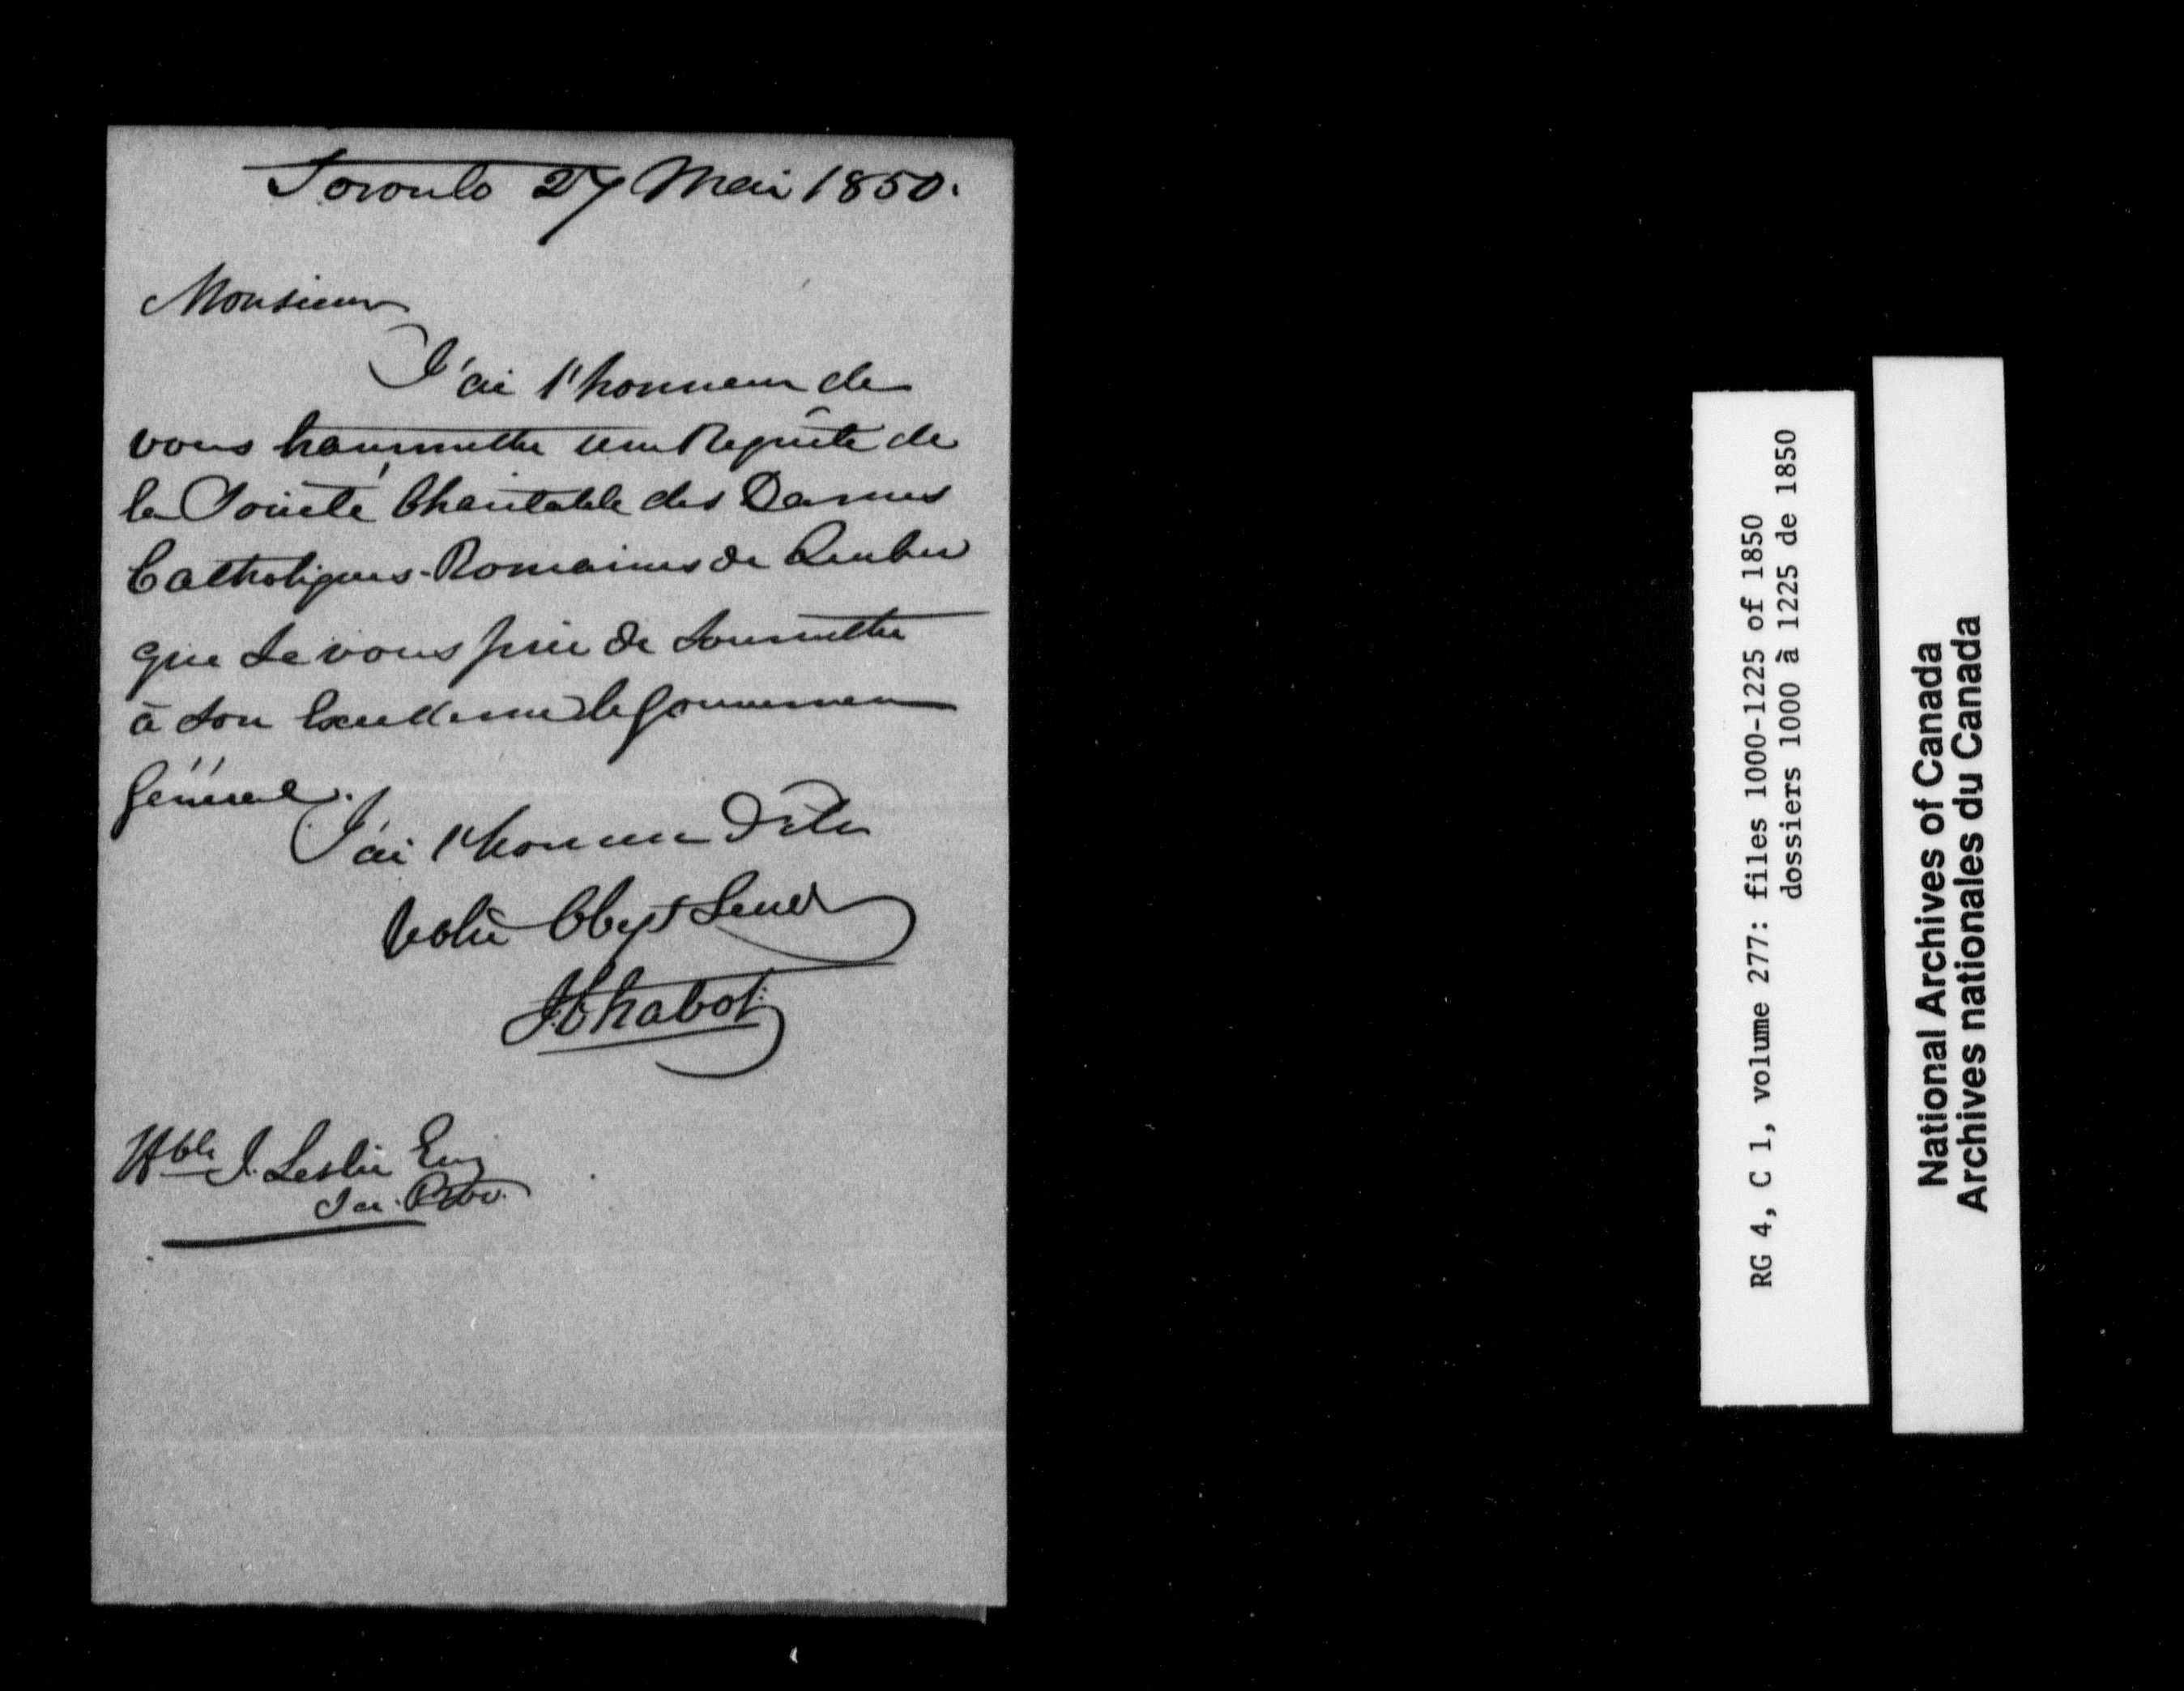 Toronto 27 Mai 1850.
Monsieur
J'ai l'honneur de
vous transmettre une Requête de
la Société Charitable des Dames
Catholiques-Romaines de Quebec
que je vous prie de soumettre
à Son Excellence le Gouverneur
Général.
J'ai l'honneur d'etre
Votre Obeist Servr
J. Chabot
Hble J. Leslie
Sec. Prov.
RG 4, C 1, volume 277: files 1000-1225 of 1850
dossiers 1000 à 1225 de 1850
National Archives of Canada
Archives nationales du Canada